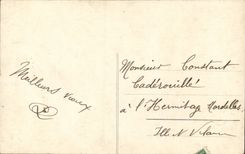 Meilleurs vœux
Monsieur Constant
Cadérouillé
à l'Hermitage Mordelles
Ille N Vilaine